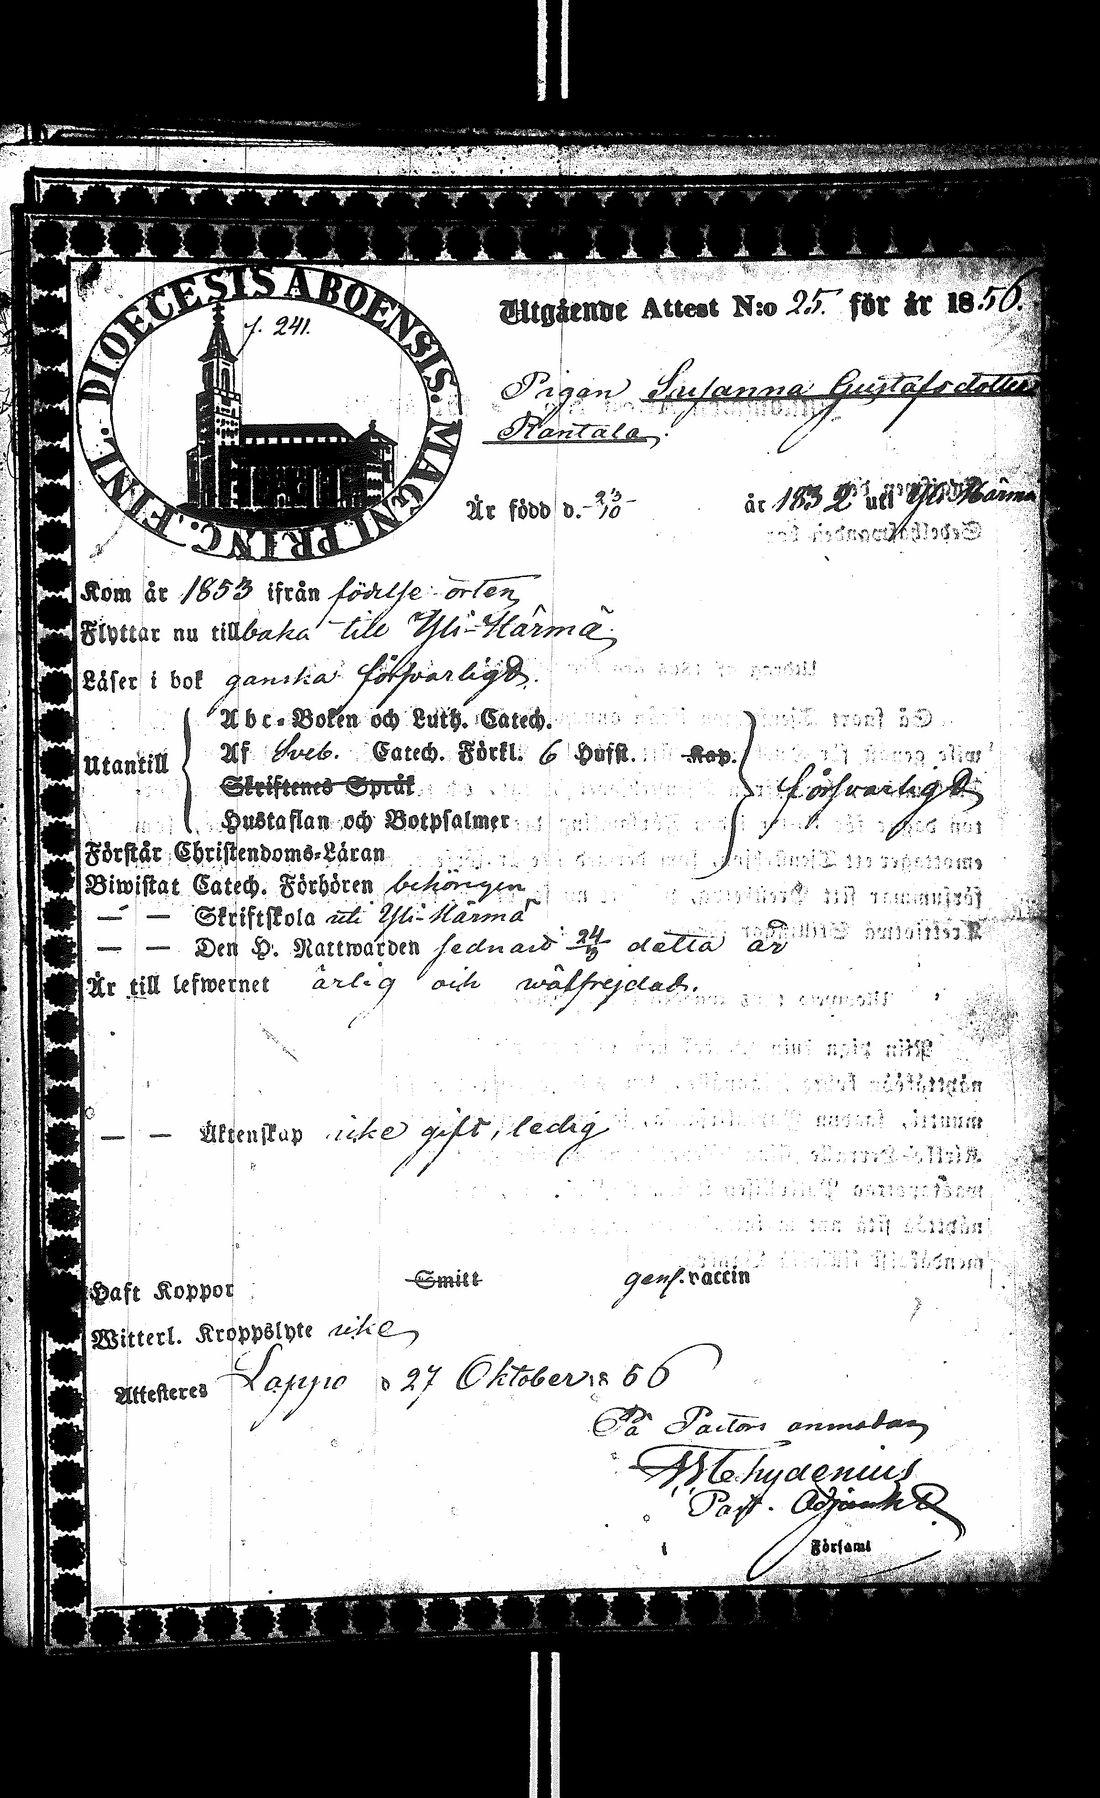 DIOECESIS ABOENSIS. MAGNI PRINC. FINL.
f. 241.
Utgående Attest N:o 25. för år 1856.
Pigan Susanna Gustafsdotter
Rantala.
Är född d. 23/10 år 1832 uti Yli-Härmä
Kom år 1853 ifrån födelse orten
Flyttar nu tillbaka till Yli-Härmä.
Läser i bok ganska försvarligt.
Utantill
Abc-Boken och Luth. Catech.
Af Sveb. Catech. Förkl. 6 Hufst. Kap.
Skriftenes Språk
Hustaflan och Botpsalmer
försvarligt
Förstår Christendoms-Läran
Biwistat Catech. Förhören behörigen
— — Skriftskola uti Yli-Härmä
— — Den H. Nattwarden sednast 24/ detta år
Är till lefwernet ärlig och wälfrejdad.
— — Äktenskap icke gift, ledig
Haft Koppor Smitt gens. vaccin
Witterl. Kroppslyte icke
Attesteres Lappo d 27 Oktober 1856
På Pastors anmodan
Chydenius
Past. Adjunkt
i Församl